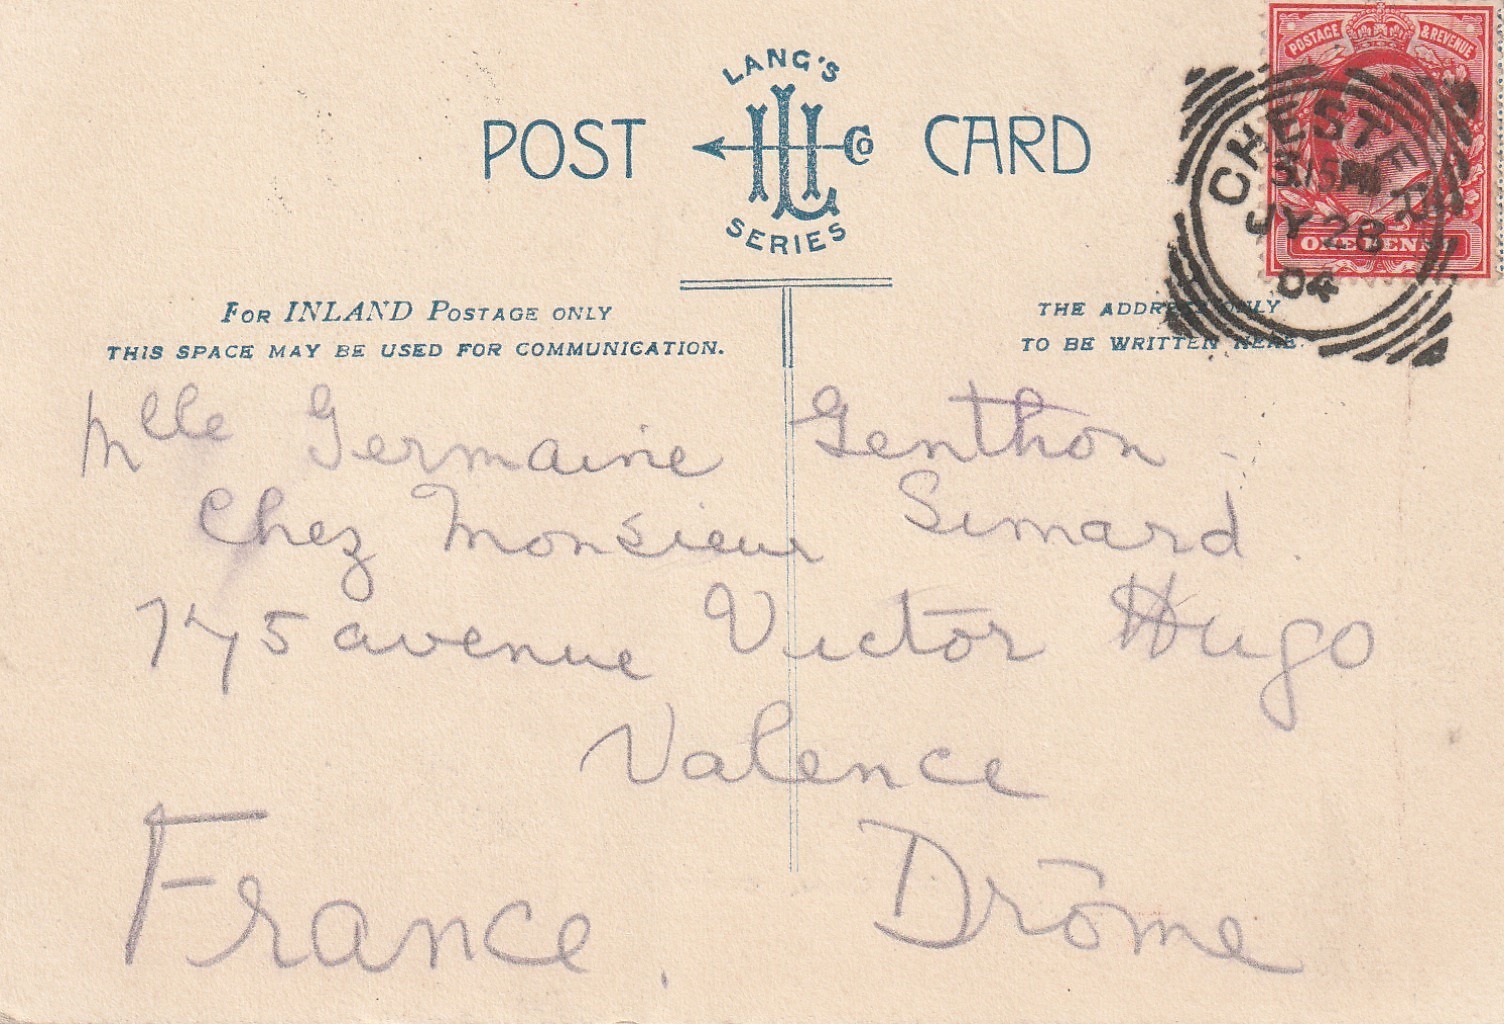 LANG'S
POST LL Co CARD
SERIES
POSTAGE & REVENUE
ONE PENNY
CHESTER
JY 28
04
FOR INLAND POSTAGE ONLY
THIS SPACE MAY BE USED FOR COMMUNICATION.
THE ADDRESS ONLY
TO BE WRITTEN HERE.
Mlle Germaine Genthon
Chez Monsieur Simard
175 avenue Victor Hugo
Valence
France. Drôme